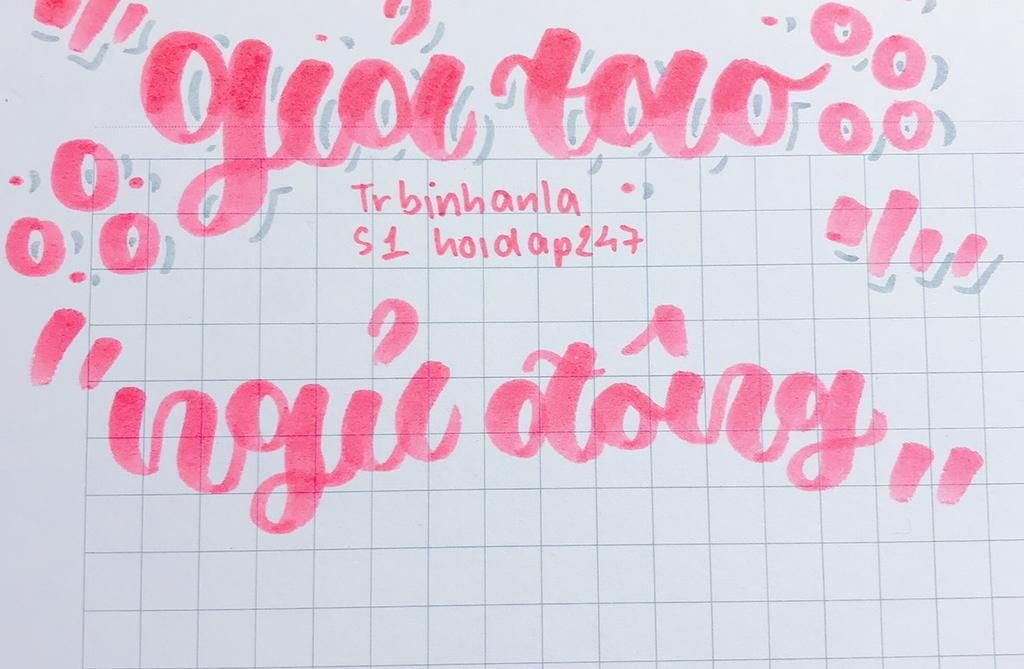 giả tạo
Trbinhanla
S1 hoidap247
"ngủ đông"